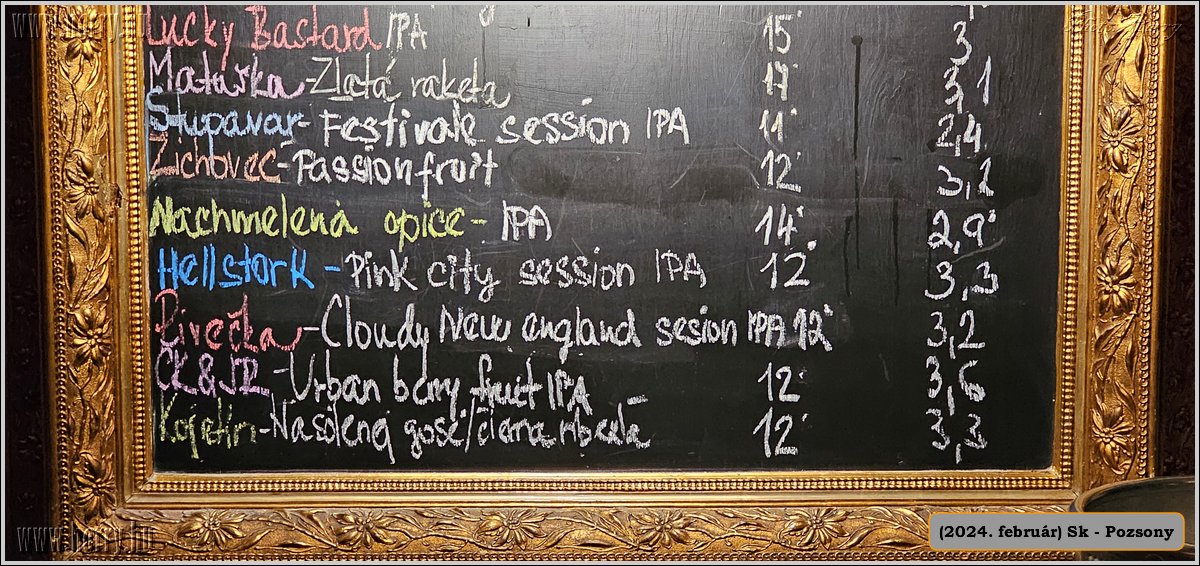 Lucky Bastard IPA 15° 3
Matuška - Zlatá raketa 17° 3,1
Stupavar - Festivale session IPA 11° 2,4
Zichovec - Passionfruit 12° 3,2
Nachmelená opice - IPA 14° 2,9
Hellstork - Pink city session IPA 12° 3,3
Pivečka - Cloudy New england sesion IPA 12° 3,2
CK&JR - Urban berry fruit IPA - 12° 3,6
Kojetín - Nasólenej gosé/čierna ríbezla 12° 3,3
(2024. február) Sk - Pozsony